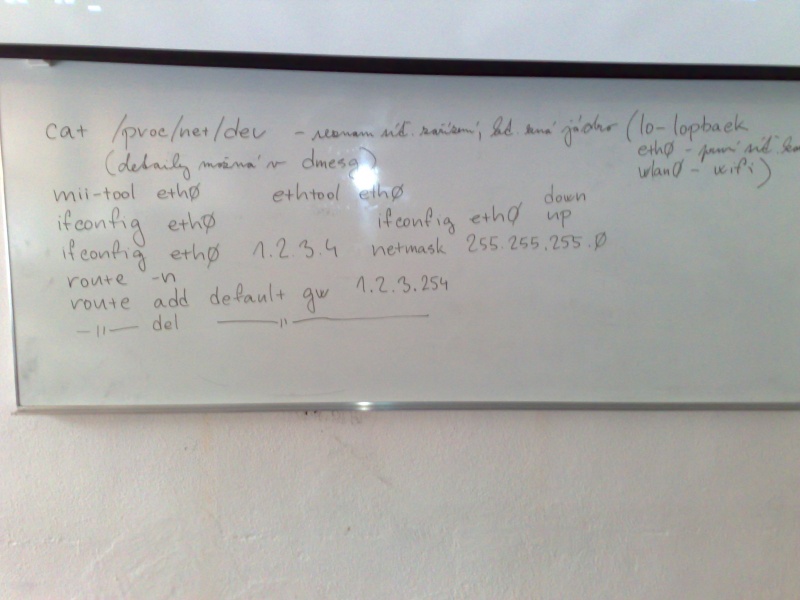 cat /proc/net/dev - seznam síť. zařízení, kt. zná jádro (lo - lopbaek
eth0 - první síť.
(detaily možná v dmesg)
wlan0 - wifi)
mii-tool eth0 ethtool eth0
down
ifconfig eth0 ifconfig eth0 up
ifconfig eth0 1.2.3.4 netmask 255.255.255.0
route -n
route add default gw 1.2.3.254
-〃- del -〃-